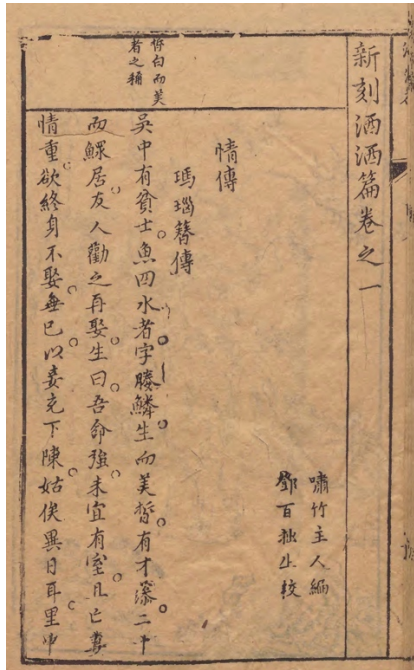 新刻洒洒篇卷之一
嘯竹主人編
鄧百拙生校
情傳
瑪瑙簪傳
皙白而美
者之稱
吳中有貧士魚四水者字騰鱗生而美皙有才藻二十
而鰥居友人勸之再娶生曰吾命強未宜有室且亡妻
情重欲終身不娶無已以妾充下陳姑俟異日耳里中